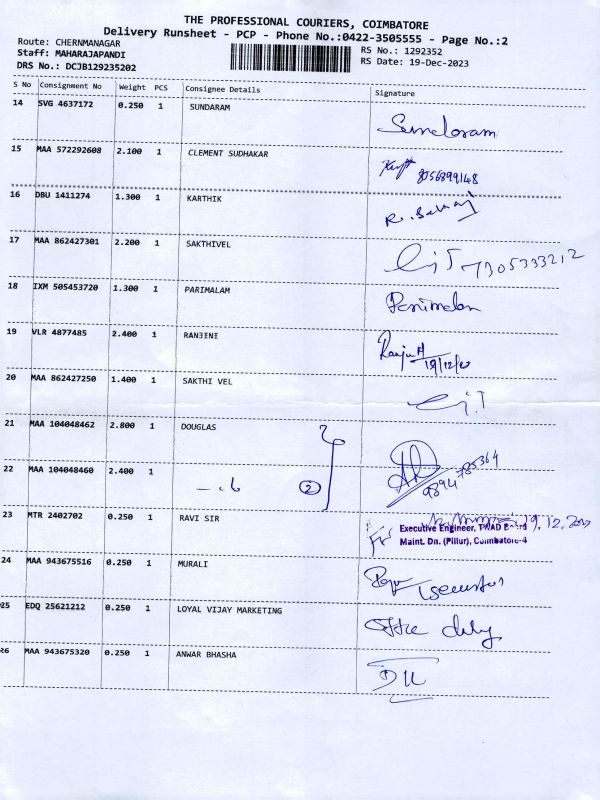 THE PROFESSIONAL COURIERS, COIMBATORE
Delivery Runsheet - PCP - Phone No.:0422-3505555 - Page No.:2
Route: CHERNMANAGAR
RS No.: 1292352
Staff: MAHARAJAPANDI
RS Date: 19-Dec-2023
DRS No.: DCJB129235202
S No Consignment No Weight PCS Consignee Details Signature
14 SVG 4637172 0.250 1 SUNDARAM Sundaram
15 MAA 572292608 2.100 1 CLEMENT SUDHAKAR 8056899148
16 DBU 1411274 1.300 1 KARTHIK
17 MAA 862427301 2.200 1 SAKTHIVEL 7305333212
18 IXM 505453720 1.300 1 PARIMALAM Parimalam
19 VLR 4877485 2.400 1 RANJENI
19/12/20
20 MAA 862427250 1.400 1 SAKTHI VEL
21 MAA 104048462 2.800 1 DOUGLAS
22 MAA 104048460 2.400 1 2 9894785364
23 MTR 2402702 0.250 1 RAVI SIR 19.12.2023
Executive Engineer, TWAD Board
Maint. Dn. (Pillur), Coimbatore-4
24 MAA 943675516 0.250 1 MURALI
25 EDQ 25621212 0.250 1 LOYAL VIJAY MARKETING
26 MAA 943675320 0.250 1 ANWAR BHASHA